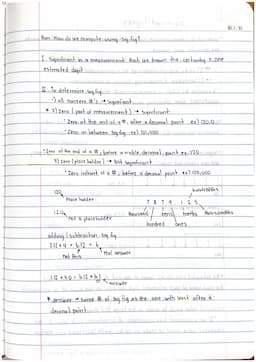 Aim: How do we compute using sig fig?
I. Significant in a measurement that are known the certainty + one
estimated digit
II. to determine sig fig
1) all nonzero #'s → significant
* 2) Zero (part of measurement) → significant
Zero at the end of a #, after a decimal point ex) 120.10
Zero in between sig fig ex)
Zero at the end of a #, before a visible decimal point ex. 170.
3) Zero (place holder) → not significant
Zero infront of a #, before a decimal point ex)
120
place holder
hundredths
7 8 7 9 . 1 2 5
120.
not a placeholder
thousand tens tenths thousandths
hundred ones
adding / subtraction sig fig
real answer
answer
* answer → same # of sig fig as the one with least after a
decimal point